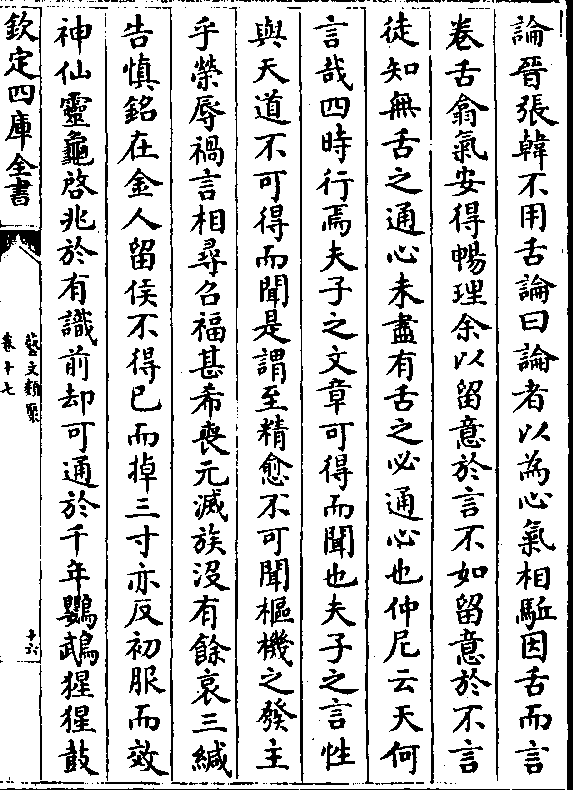 論晉張韓不用舌論曰論者以為心氣相驅因舌而言
卷舌翕氣安得暢理余以留意於言不如留意於不言
徒知無舌之通心未盡有舌之必通心也仲尼云天何
言哉四時行焉夫子之文章可得而聞也夫子之言性
與天道不可得而聞是謂至精愈不可聞樞機之發主
乎榮辱禍言相尋召福甚希喪元滅族沒有餘哀三緘
告慎銘在金人留侯不得已而掉三寸亦反初服而效
神仙靈龜啓兆於有識前却可通於千年鸚鵡猩猩鼓
欽定四庫全書
藝文類聚
卷十七
十六